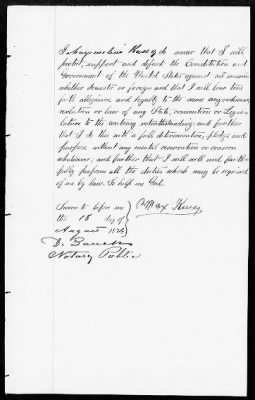 do swear that I will
protect, support and defend the Constitution and
Government of the United States against all enemies
whether domestic or foreign and that I will bear true
faith allegiance and loyalty to the same any ordinance,
resolution or law of any State, convention or Legis-
lature to the contrary notwithstanding; and further
that I do this with a full determination, pledge and
purpose without any mental reservation or evasion
whatever; and further that I will well and faith-
fully perform all the duties which may be required
of me by law. So help me God.
Sworn to before me
this 18 day of
August
Notary Public